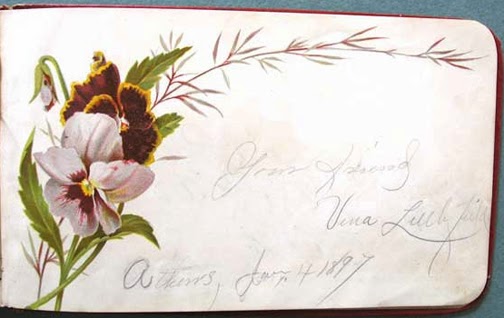 Your Friend
Vina
Athens, Jan. 4 1897